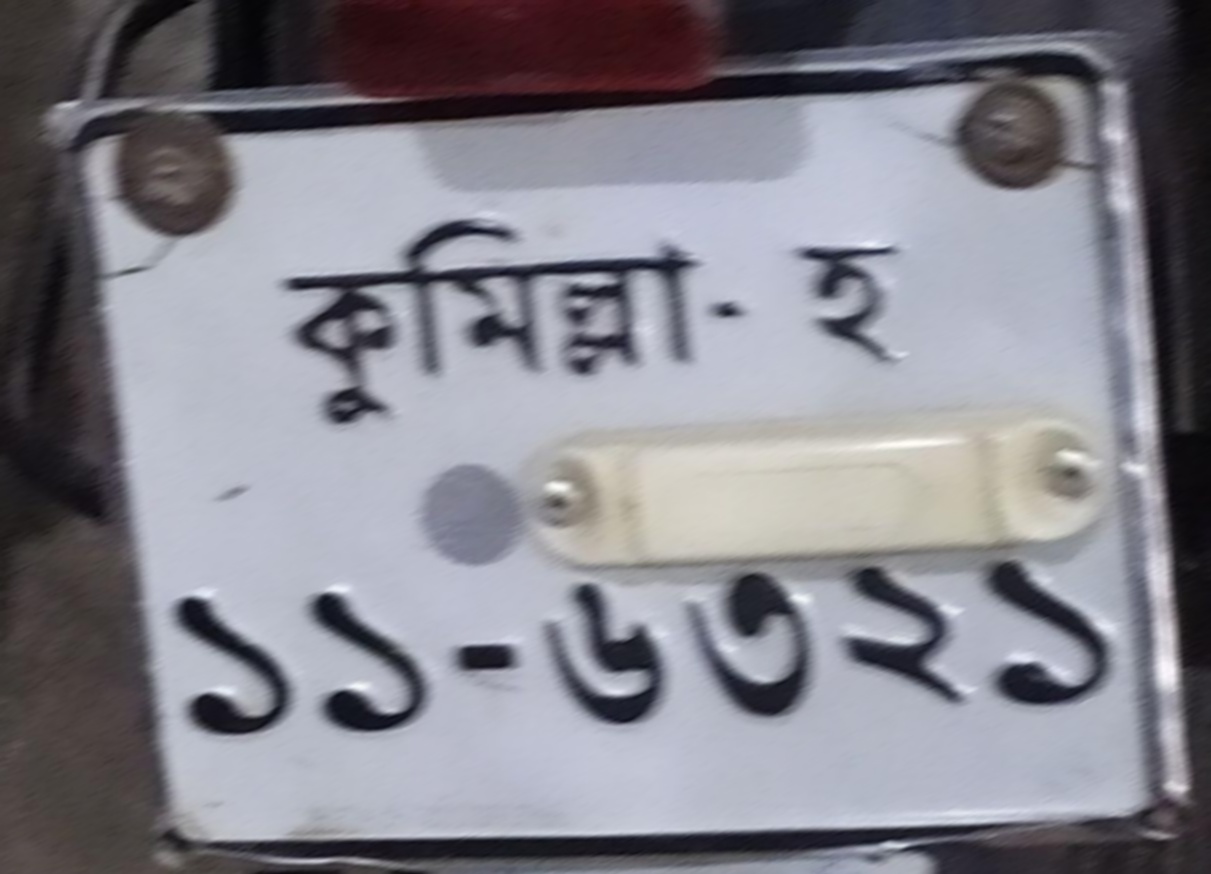 কুমিল্লা- হ
১১-৬৩২১